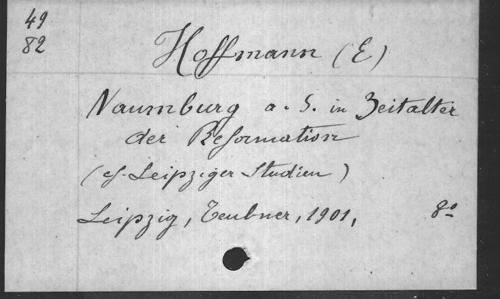 49
82
Hoffmann (E)
Naumburg a. S. in Zeitalter
der Reformation
(cf. Leipziger Studien)
Leipzig, Teubner, 1901, 8°